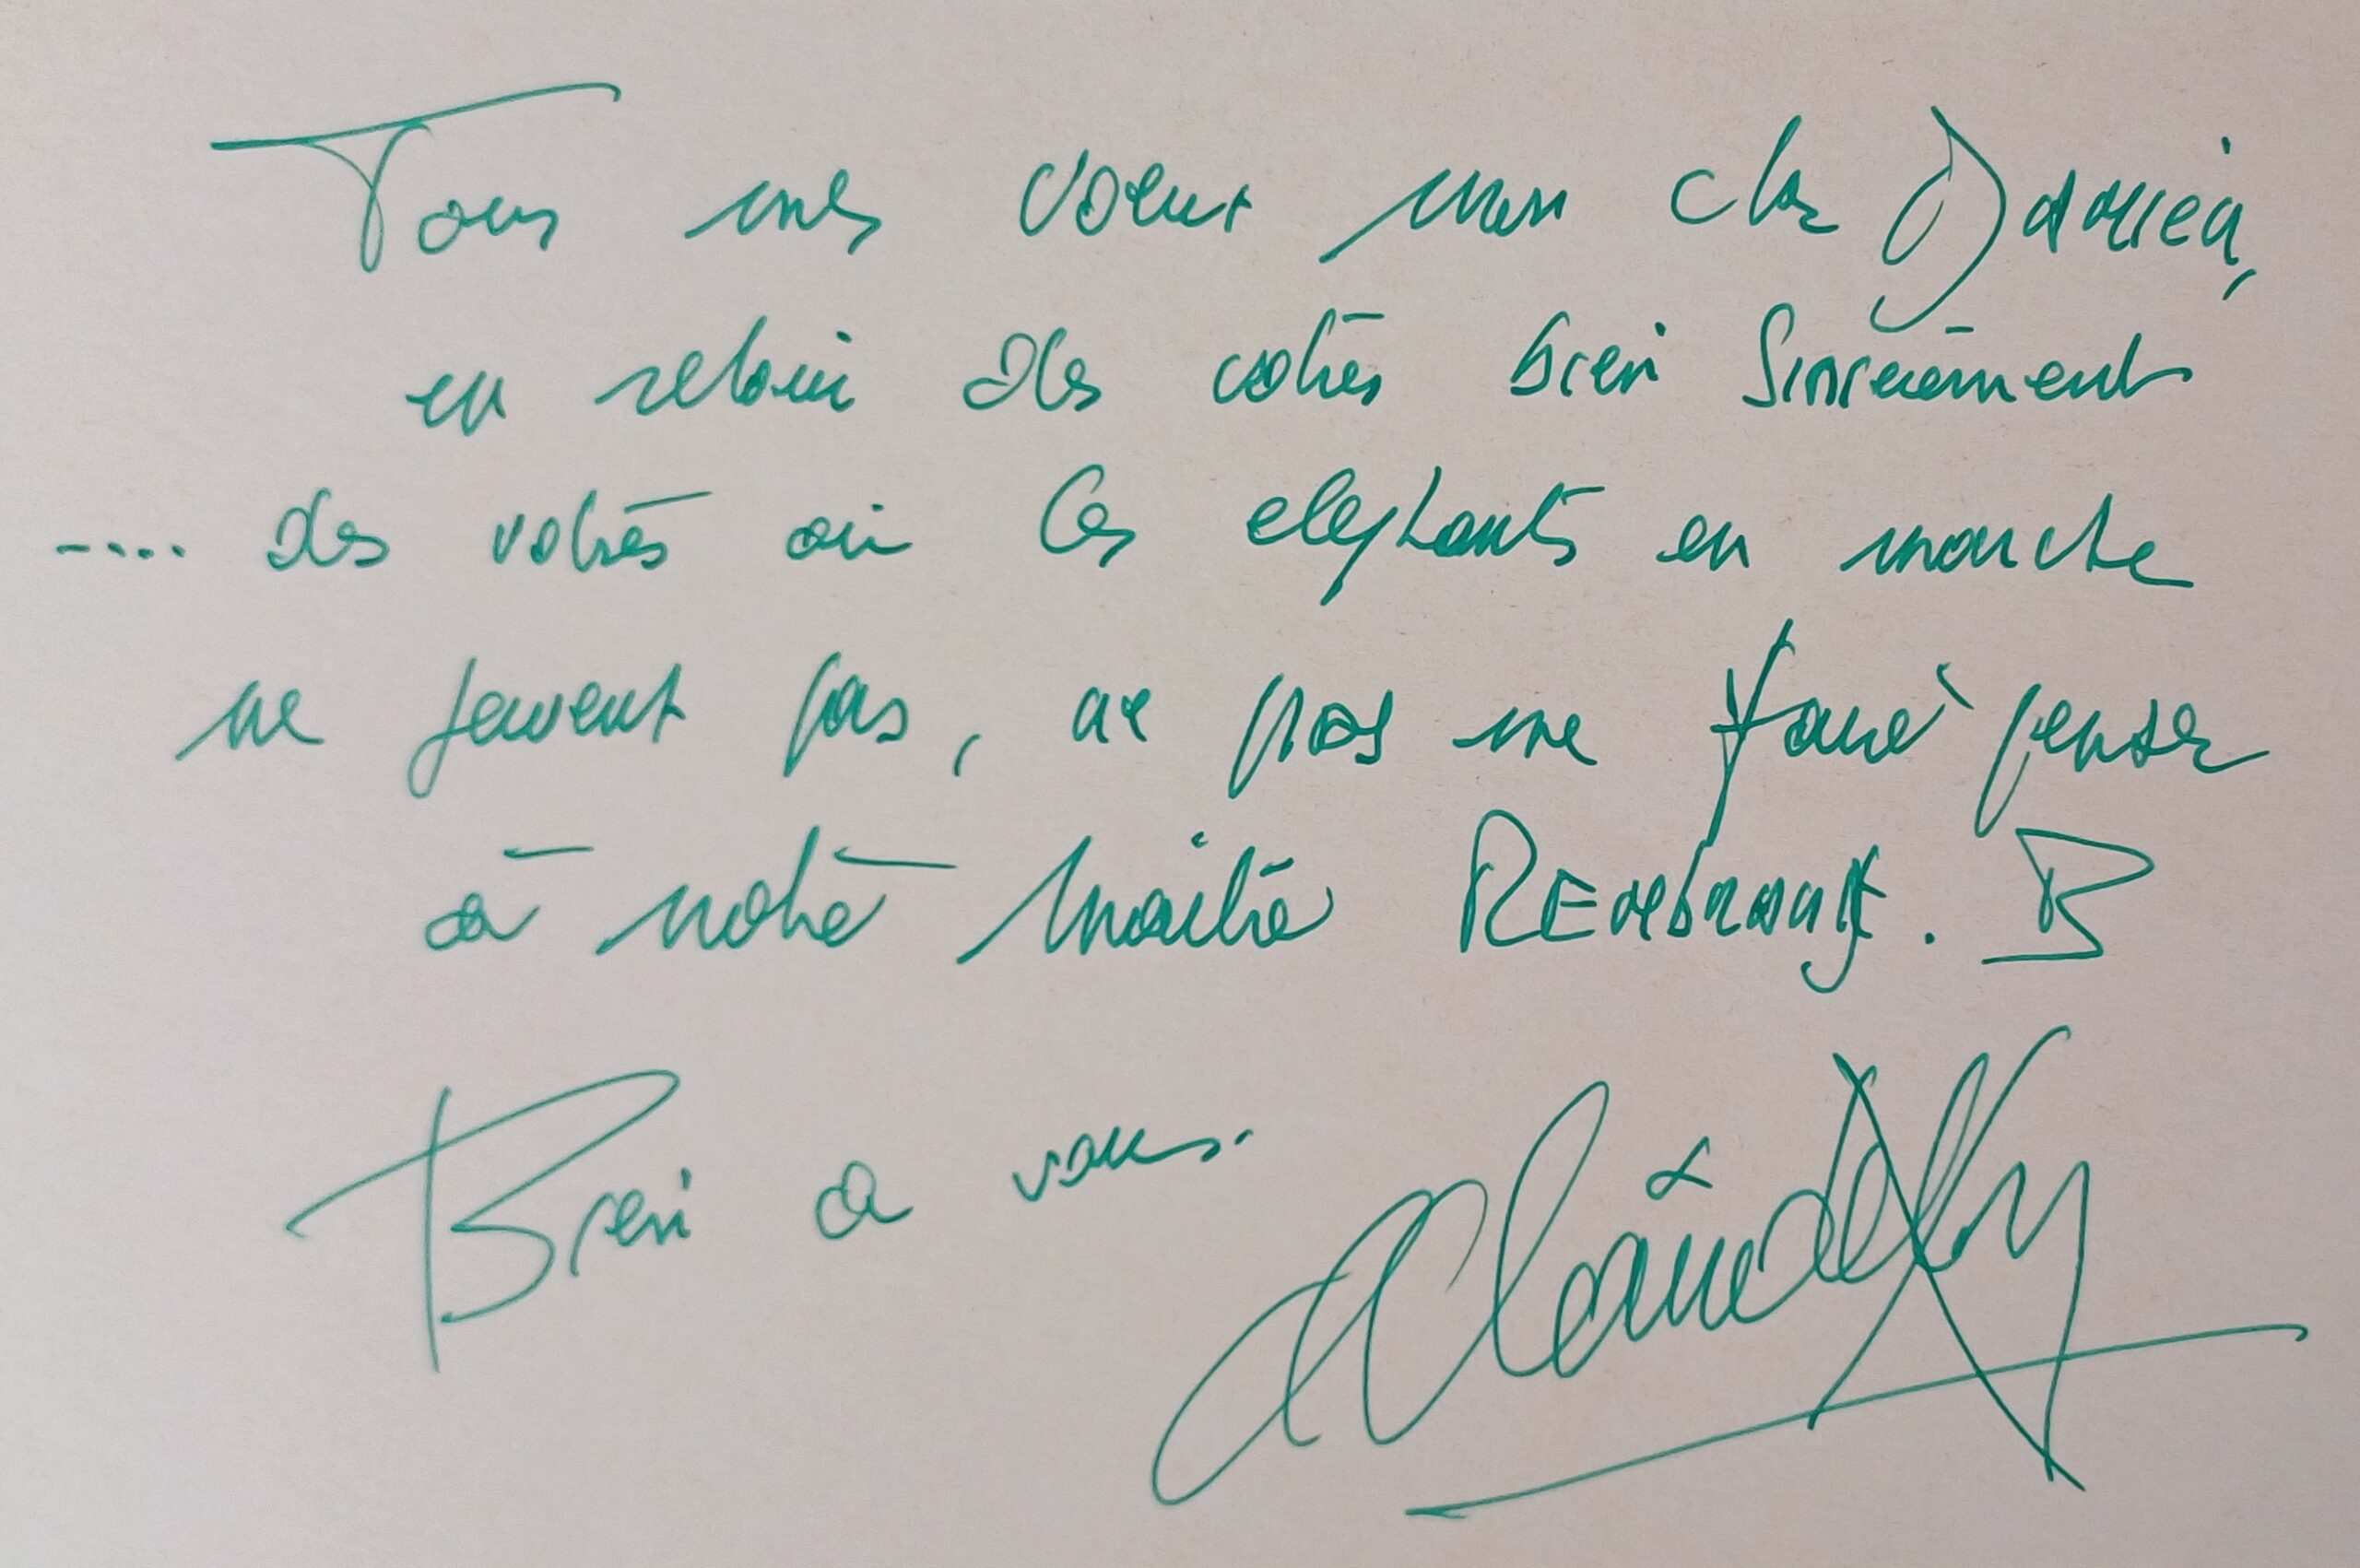 Tous mes voeux mon cher Damien,
en retour des votres bien sincèrement
.... des votres où les elephants en marche
ne peuvent pas, ne pas me faire penser
à notre maître REmbrandt. B
Bien a vous.